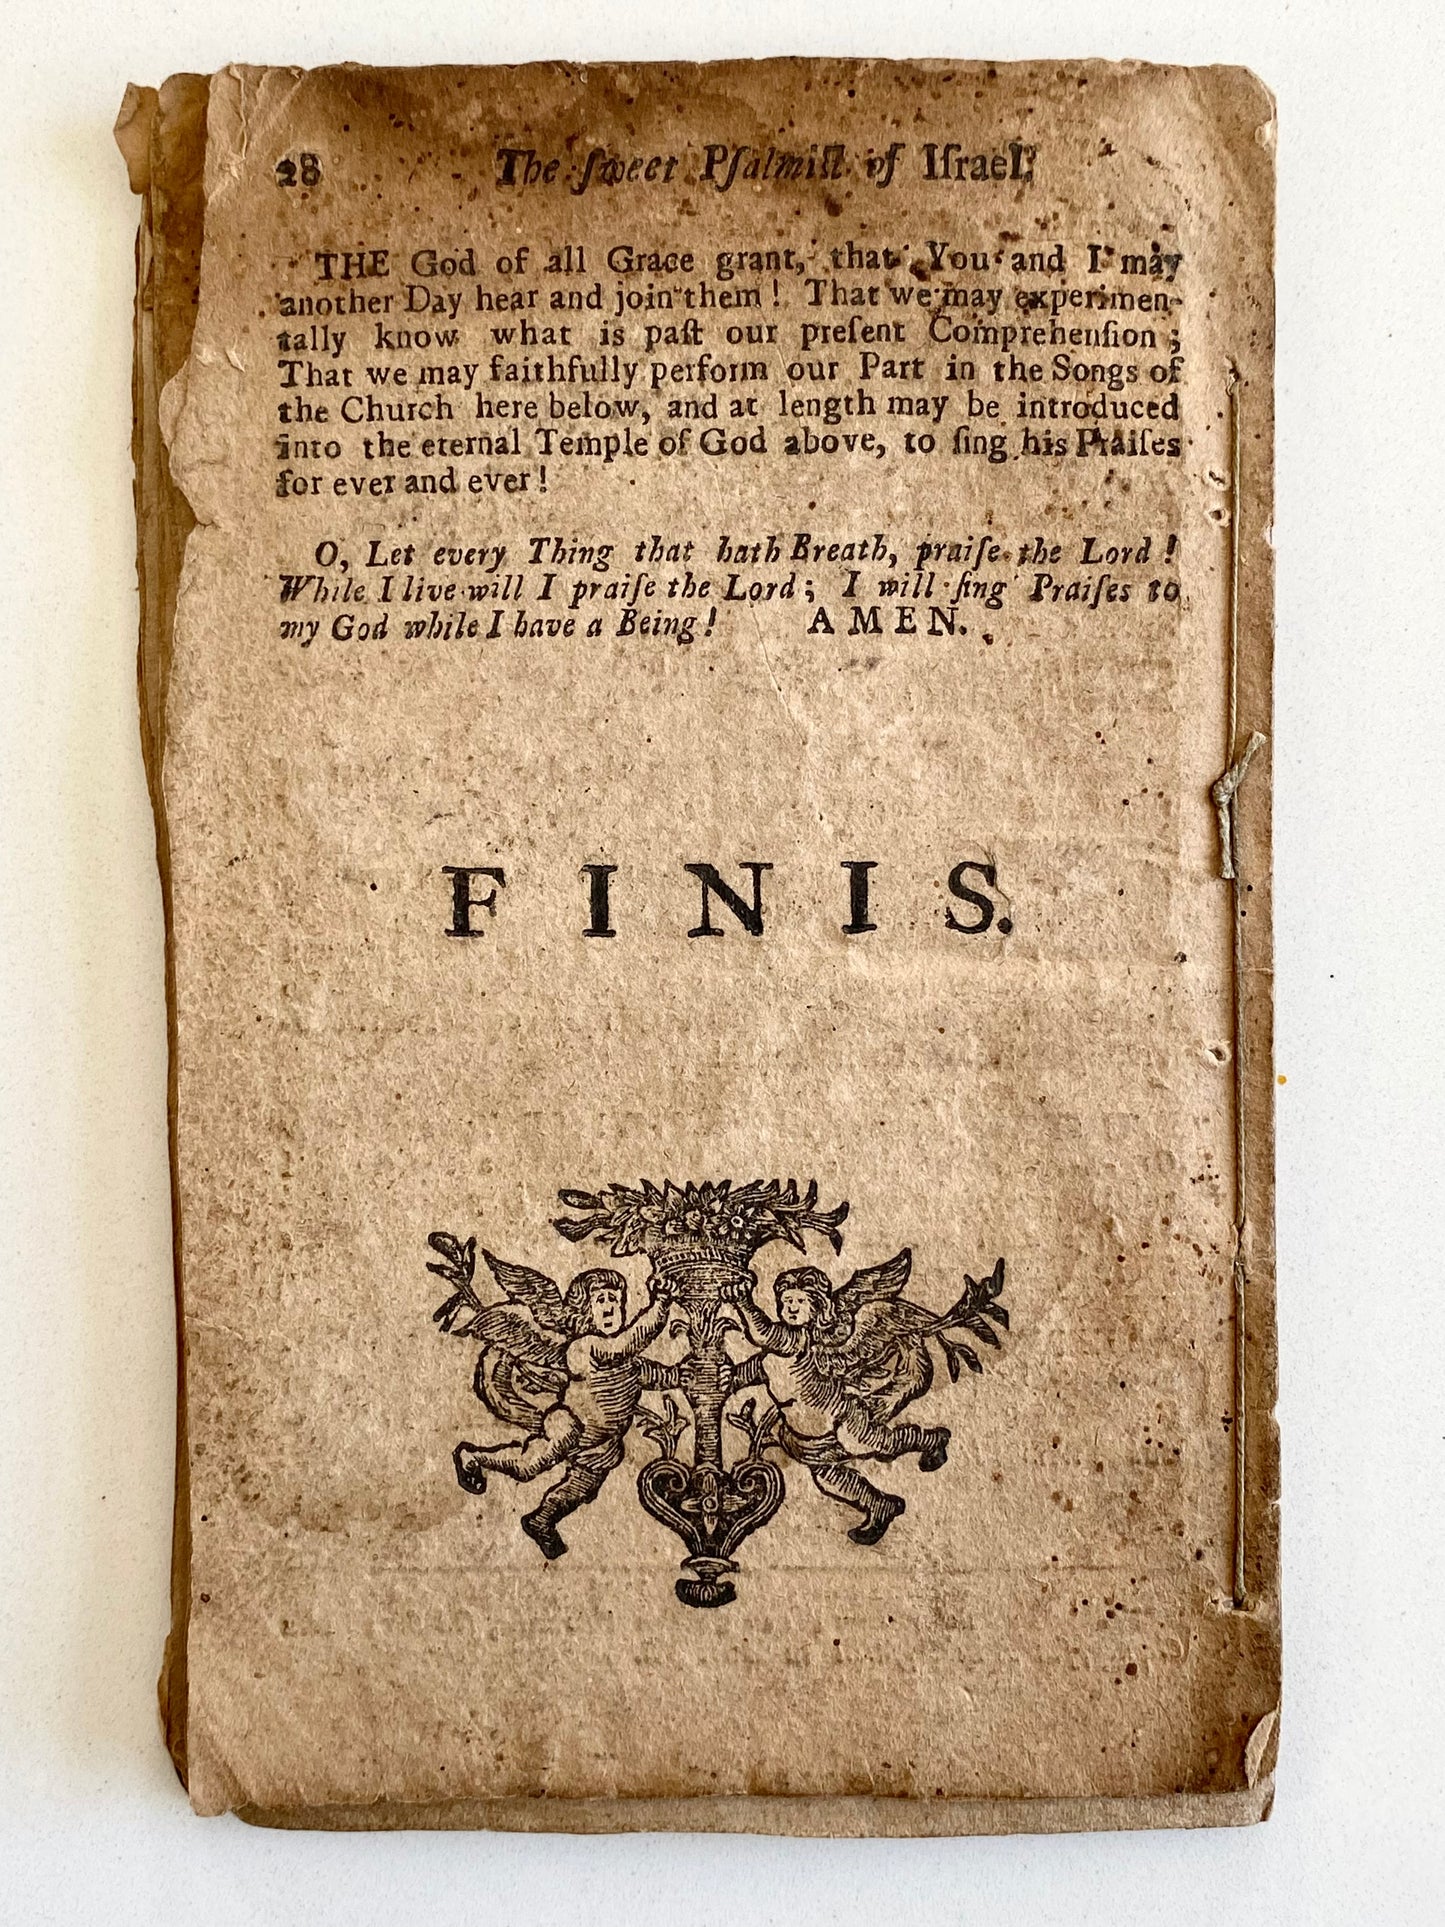 28 The ſweet Pſalmiſt of Iſrael.
THE God of all Grace grant, that You and I may
another Day hear and join them! That we may experimen-
tally know what is paſt our preſent Comprehenſion;
That we may faithfully perform our Part in the Songs of
the Church here below, and at length may be introduced
into the eternal Temple of God above, to ſing his Praiſes
for ever and ever!
O, Let every Thing that hath Breath, praiſe the Lord!
While I live will I praiſe the Lord; I will ſing Praiſes to
my God while I have a Being! AMEN.
FINIS.